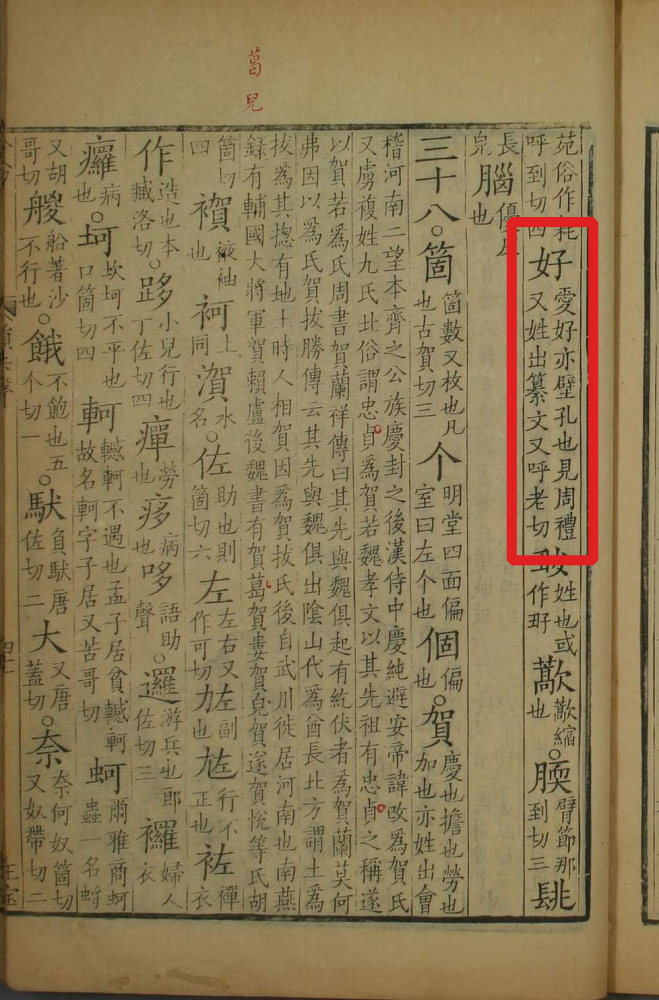 葛皃
苑俗作耗呼到切四好愛好亦壁孔也見周禮又姓出纂文又呼老切姓也或作㝀歊縮也。腝臂節那到切三
長皃腦優皮也
三十八。箇箇數又枚也凡也古賀切三个明堂四面偏室曰左个也個偏也。賀慶也擔也勞也加也亦姓出會
稽河南二望本齊之公族慶封之後漢侍中慶純避安帝諱改爲賀氏
又虜複姓九氏北俗謂忠貞爲賀若魏孝文以其先祖有忠貞之稱遂
以賀若爲氏周書賀蘭祥傳曰其先與魏俱起有紇伏者爲賀蘭莫何
弗因以爲氏賀拔勝傳云其先與魏俱出陰山代爲酋長北方謂土爲
拔爲其揔有地土時人相賀因爲賀拔氏後自武川徙居河南也南燕
錄有輔國大將軍賀賴盧後魏書有賀葛賀婁賀皃賀遂賀悅等氏胡
箇切四袔被袖也袔上同水名。佐助也則箇切六左左右又作可切左副也行不正也袏襌衣
作造也本臧洛切。跢小兒行也丁佐切四癉勞也病也哆語助聲。邏游兵也郎佐切三婦人衣
癯病也。坷坎坷不平也口箇切四軻轗軻不遇也孟子居貧轗軻故名軻字子居又苦哥切蚵爾雅商蚵蟲一名蜉
又胡哥切艐船著沙不行也。餓不飽也五个切一馱負馱唐佐切二大又唐蓋切。奈奈何奴箇切又奴帶切二